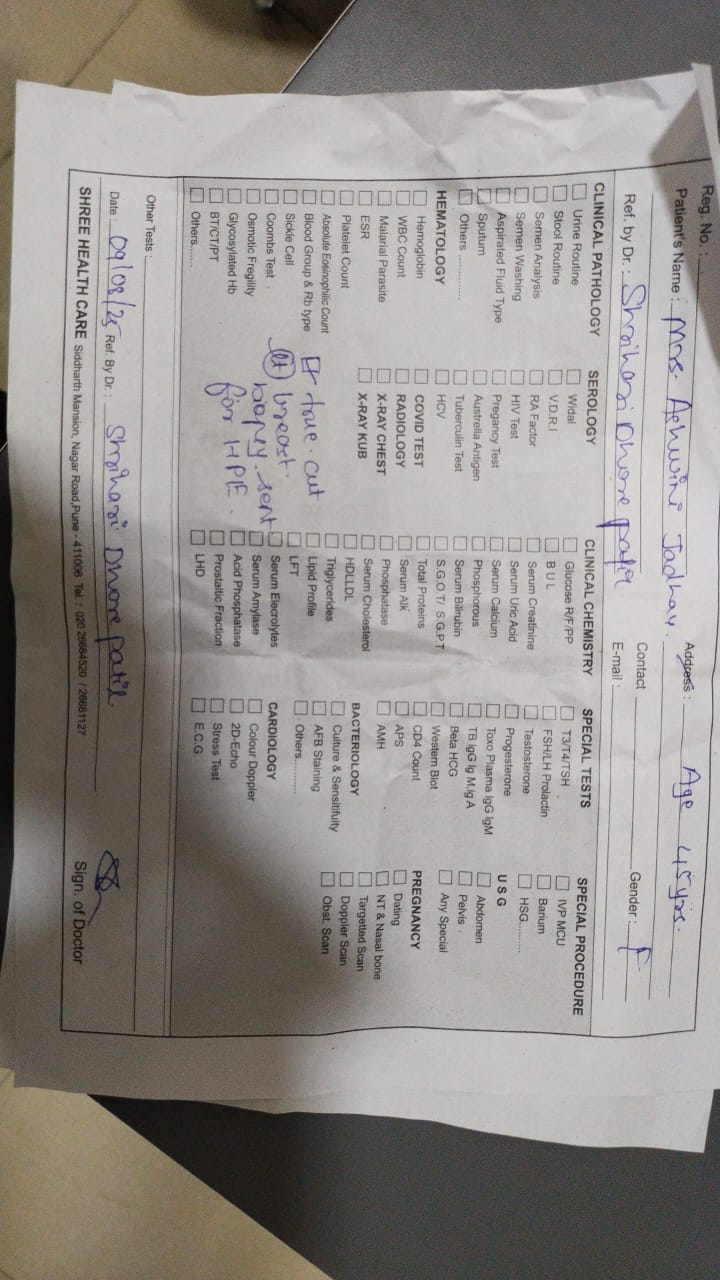 Reg. No. :
Patient's Name : Mrs. Ashwini Jadhav. Address : Age 45 yrs.
Contact Gender : F
Ref. by Dr. : Shrihari Dhore patil E-mail :
CLINICAL PATHOLOGY
Urine Routine
Stool Routine
Semen Analysis
Semen Washing
Aspirated Fluid Type
Sputum
Others .............
HEMATOLOGY
Hemoglobin
WBC Count
Malarial Parasite
ESR
Platelet Count
Absolute Eosinophilic Count
Blood Group & Rb type
Sickle Cell
Coombs Test
Osmotic Fregility
Glycosylated Hb
BT/CT/PT
Others........
SEROLOGY
Widal
V.D.R.I
RA Factor
HIV Test
Pregancy Test
Austrella Antigen
Tuberculin Test
HCV
COVID TEST
RADIOLOGY
X-RAY CHEST
X-RAY KUB
true cut
breast
biopsy sent
for HPE.
CLINICAL CHEMISTRY
Glucose R/F/PP
B U L
Serum Creatinine
Serum Uric Acid
Serum Calcium
Phosphorous
Serum Bilirubin
S.G.O.T/ S.G.P.T
Total Proteins
Serum Alk
Phosphatase
Serum Cholesterol
HDLLDL
Triglycerides
Lipid Profile
LFT
Serum Elecrolytes
Serum Amylase
Acid Phosphatase
Prostaltic Fraction
LHD
SPECIAL TESTS
T3/T4/TSH
FSH/LH Prolactin
Testosterone
Progesterone
Toxo Plasma IgG IgM
TB IgG Ig M.Ig A
Beta HCG
Western Blot
CB4 Count
APS
AMH
BACTERIOLOGY
Culture & Sensitifuity
AFB Staining
Others...........
CARDIOLOGY
Colour Doppler
2D-Echo
Stress Test
E.C.G.
SPECIAL PROCEDURE
IVP MCU
Barium
HSG..........
U S G
Abdomen
Pelvis .
Any Special
PREGNANCY
Dating
NT & Nasal bone
Targetted Scan
Doppler Scan
Obst. Scan
Other Tests :
Date : 09/08/25 Ref. By Dr. : Shrihari Dhore patil. Sign. of Doctor
SHREE HEALTH CARE Siddharth Mansion, Nagar Road,Pune - 411006 Tel. : 020 26684520 / 26681127